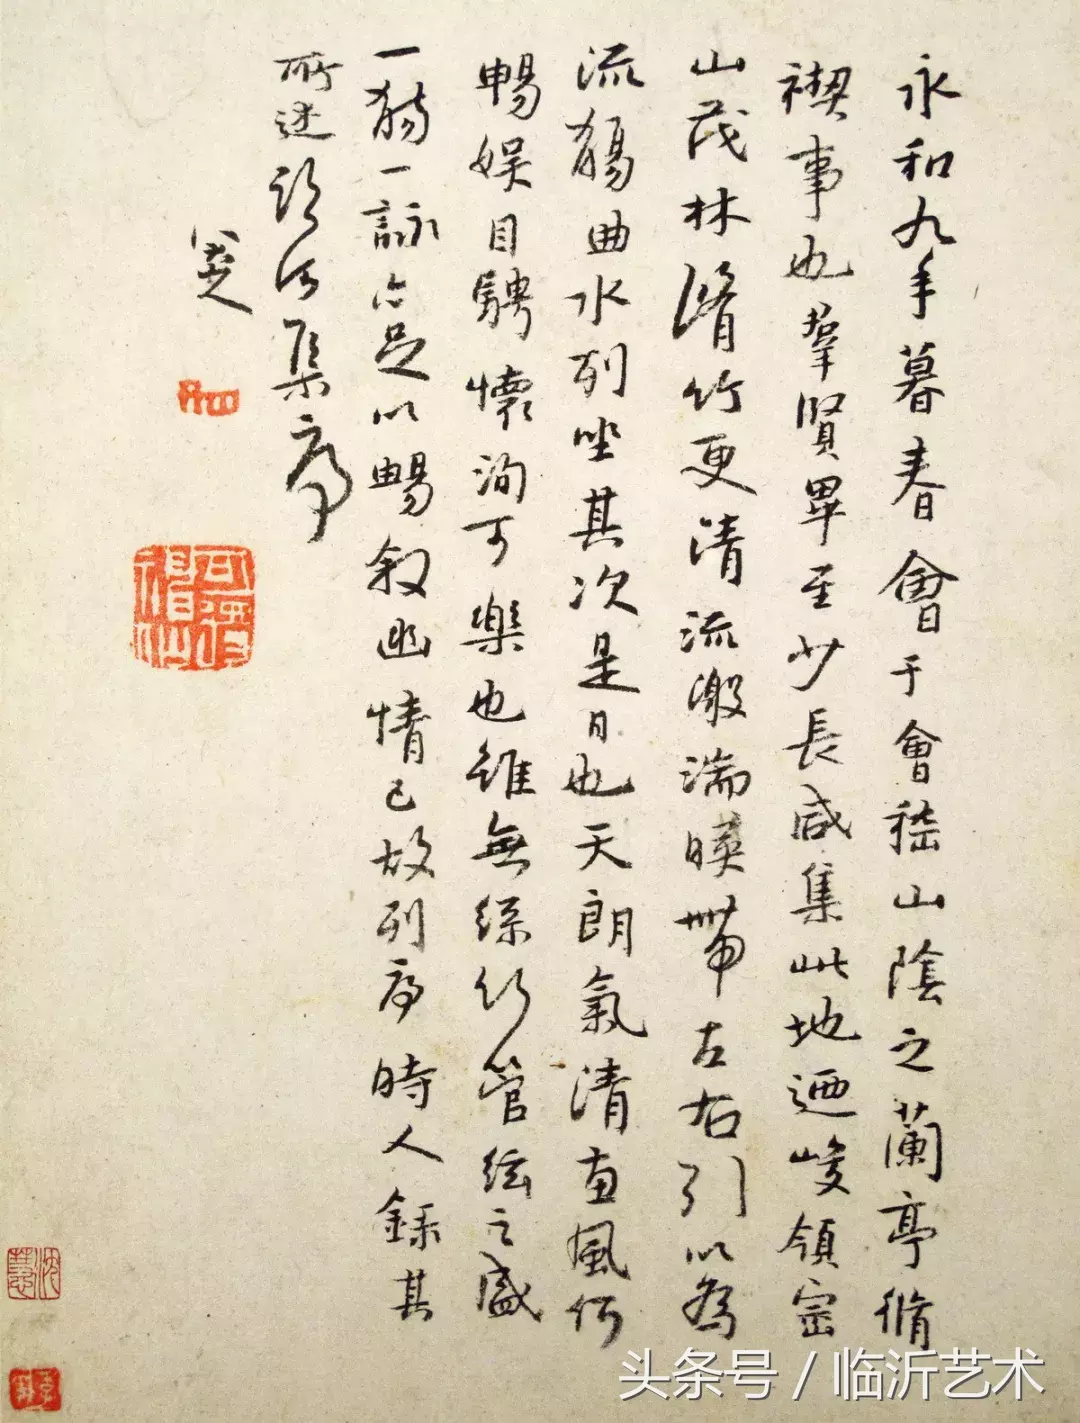 永和九年暮春會于會稽山陰之蘭亭脩
禊事也羣賢畢至少長咸集此地迺峻領崇
山茂林脩竹更清流激湍暎帶左右引以為
流觴曲水列坐其次是日也天朗氣清惠風何
暢娛目騁懷洵可樂也雖無絲竹管絃之盛
一觴一詠亦足以暢叙幽情已故列序時人錄其
所述臨河集序
八大山人
可得神仙
头条号 / 临沂艺术